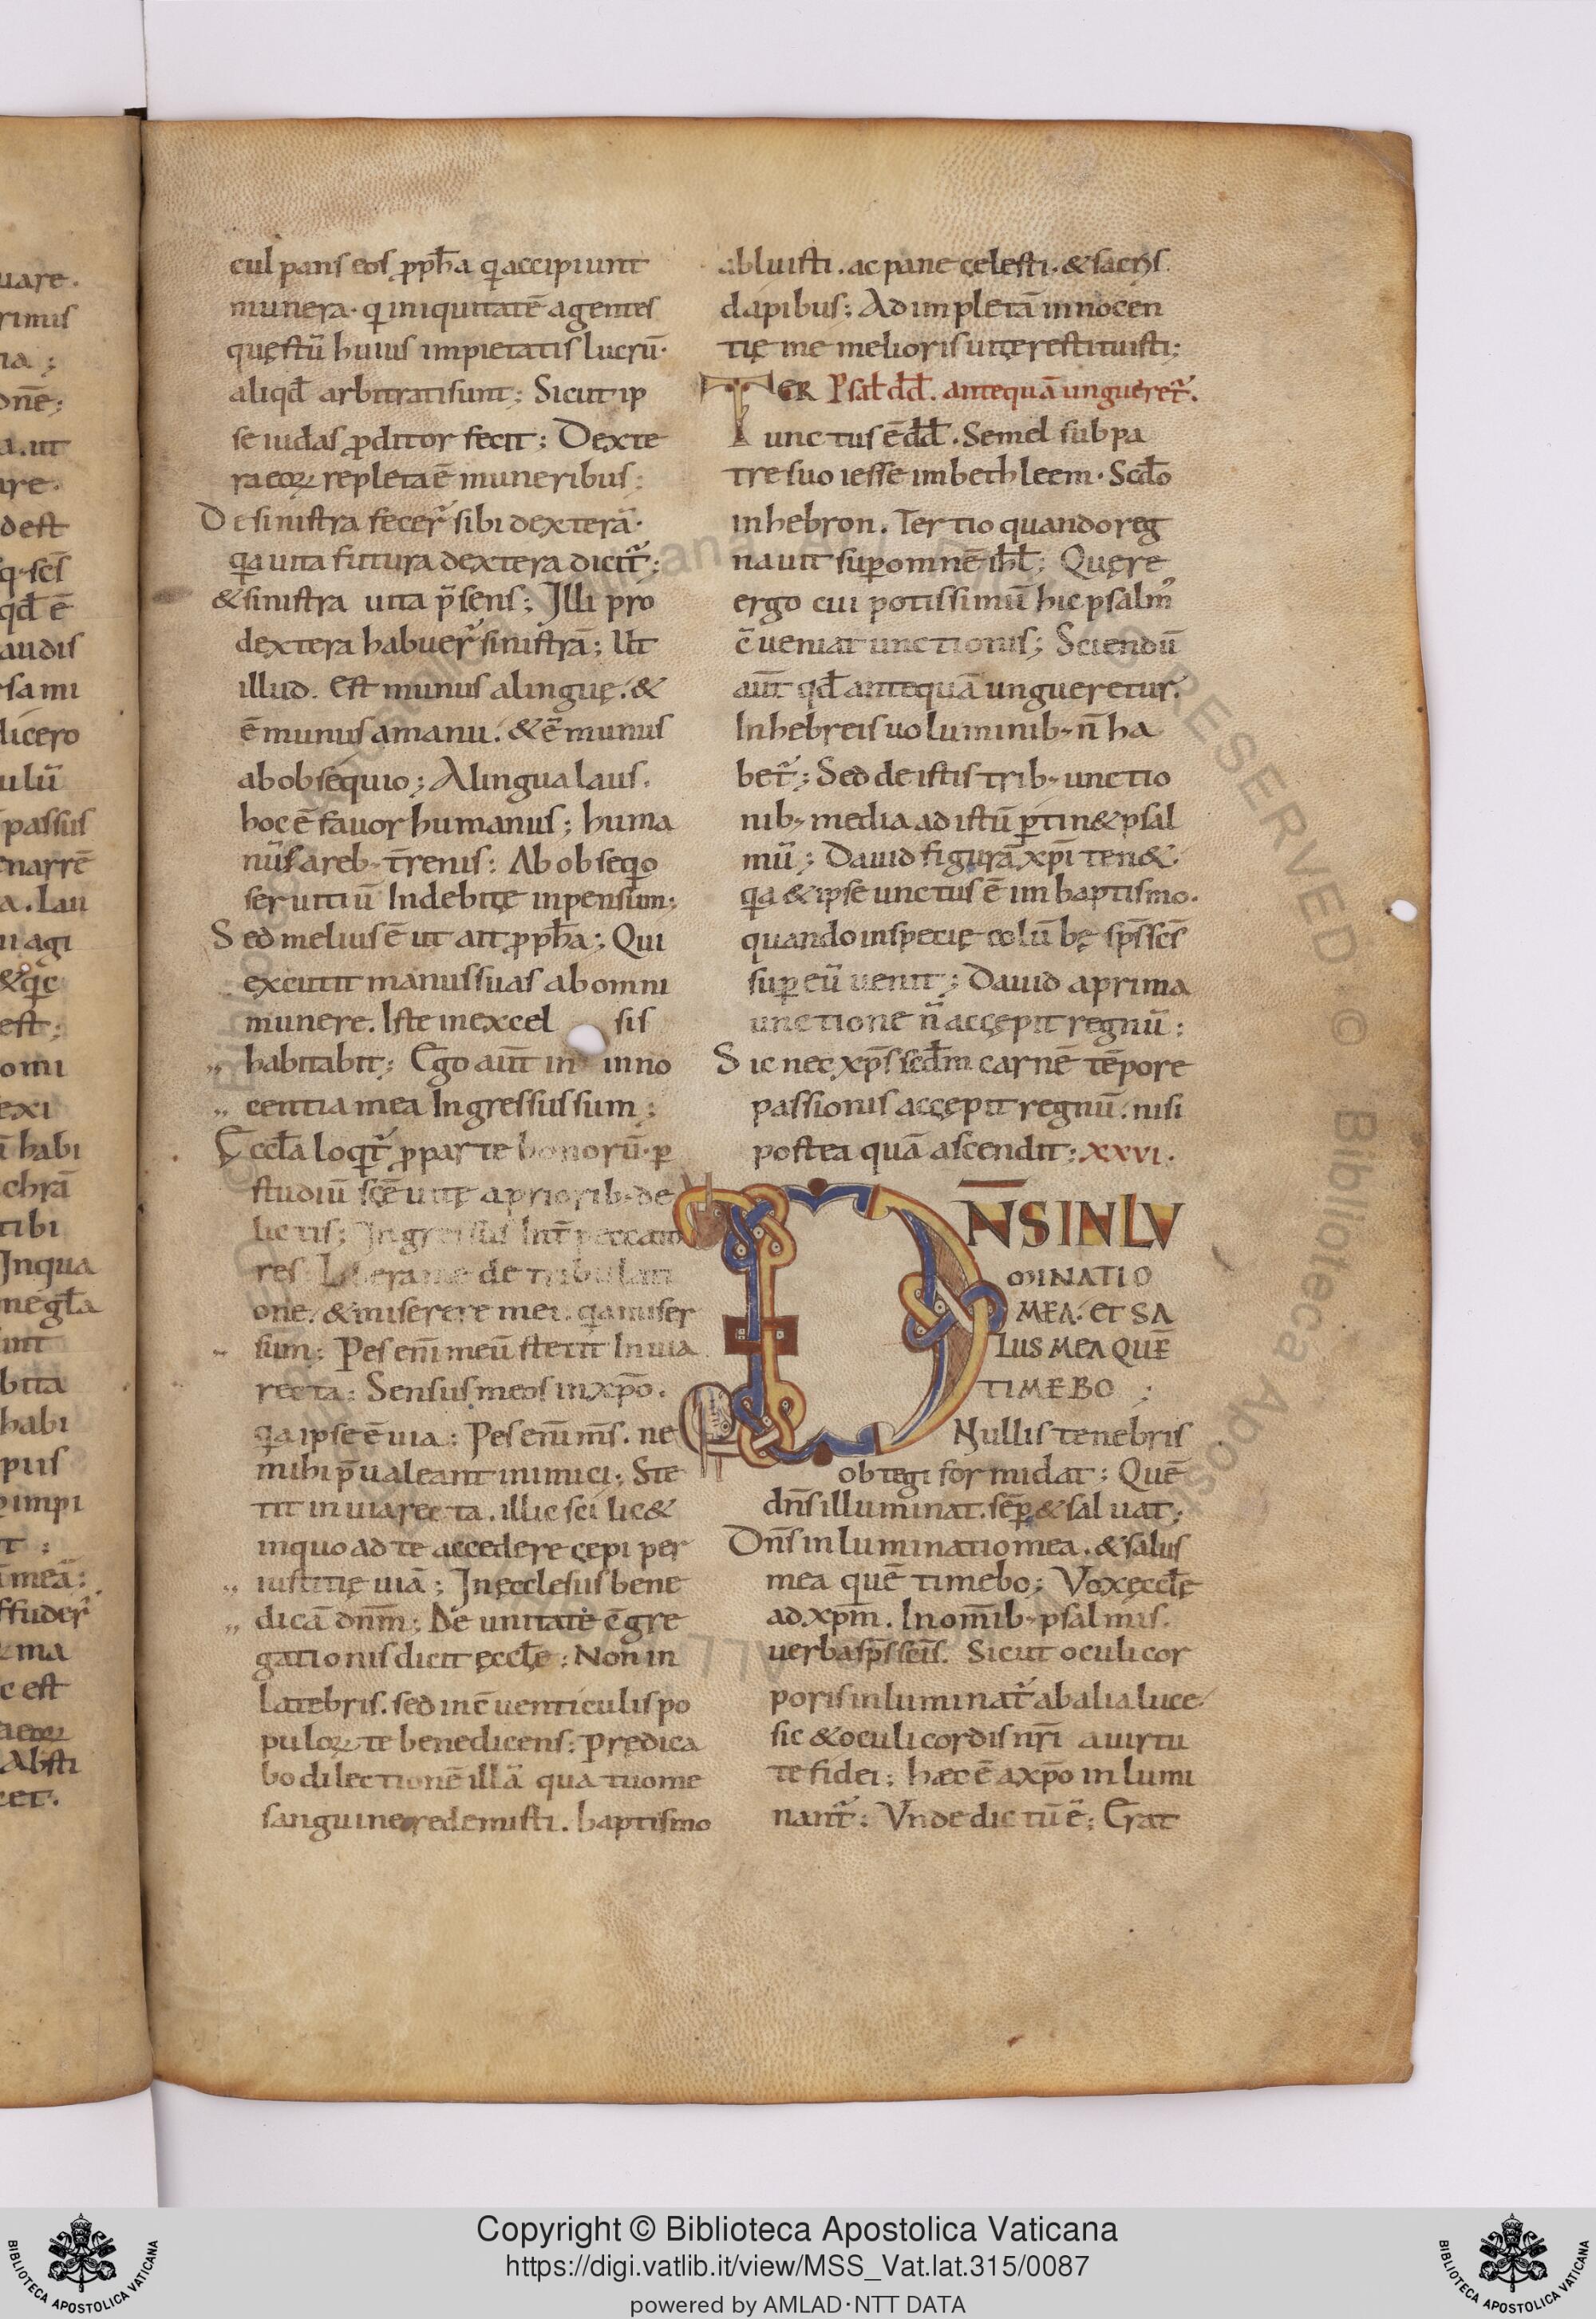 cul pans eos, pphā q accipiunt
munera. q iniquitatē agentes
quęstū huius impietatis lucrū.
aliqđ arbitrati sunt; Sicut ip
se iudas pditor fecit; Dexte
ra eoꝝ repleta ē muneribus;
De sinistra fecer sibi dexterā.
qa uita futura dextera dicit;
& sinistra uita p̄sens; Illi pro
dextera habuer sinistrā; Ut
illud. Est munus a linguę. &
ē munus a manu. & ē munus
ab obsequio; A lingua laus.
hoc ē fauor humanus; huma
nus a reb; t̄renis; Ab obseqo
seruitiū Indebitę inpensum;
Sed melius ē ut ait ppha; Qui
excutit manus suas ab omni
munere. Iste in excel sis
habitabit; Ego aūt in inno
centia mea Ingressus sum;
Ęccła loqt p parte bonorū. p
studiū scē uitę a priorib; de
lictis; Ingressus Int peccato
res; Libera me de tribulati
one. & miserere mei. qa miser
sum; Pes enī meū stetit In uia
recta; Sensus meos in xpo.
qa ipse ē uia; Pes enim ms. ne
mihi p̄ualeant inimici; Ste
tit in uia recta. illic scilic&
in quo ad te accedere cępi per
iustitię uiā; In ęcclesiis bene
dicā dnm; De unitate c̄gre
gationis dicit ęccłę; Non in
latebris. sed in c̄uenticulis po
puloꝝ te benedicens; Prędica
bo dilectionē illā qua tuo me
sanguine redemisti. baptismo
abluisti. ac pane cęlesti. & sacris
dapibus; Ad impletā innocen
tię me melioris uitę restituisti;
TER Psal dd. antequā ungueret.
unctus ē dd. Semel sub pa
tre suo iesse im bethleem. Scdo
in hebron. Tertio quando reg
nauit sup omnē isł; Quęre
ergo cui potissimū hic psalm
c̄ueniat unctionis; Sciendū
aūt qđ antequā ungueretur.
In hebreis uoluminib; n̄ ha
bet; Sed de istis trib; unctio
nib; media ad istū ptin& psal
mū; Dauid figurā xpi ten&.
qa & ipse unctus ē im baptismo.
quando in specię colūbę sps scs
sup eū uenit; Dauid a prima
unctione n̄ accępit regnū;
Sic nec xps scdm carnē tēpore
passionis accępit regnū. nisi
postea quā ascendit; xxvi.
DN̄S INLU
MINATIO
MEA. ET SA
LUS MEA QUĒ
TIMEBO;
Nullis tenebris
obtegi formidat; Quē
dn̄s illuminat. sēp & saluat;
Dn̄s inluminatio mea. & salus
mea quē timebo; Vox ęccłę
ad xpm. In omib; psalmis.
uerba sps scis. Sicut oculi cor
poris inluminat ab alia luce
sic & oculi cordis nr̄i a uirtu
te fidei; hæc ē a xpo inlumi
nant; Unde dictū ē; Erat
Copyright © Biblioteca Apostolica Vaticana
https://digi.vatlib.it/view/MSS_Vat.lat.315/0087
powered by AMLAD·NTT DATA
BIBLIOTECA APOSTOLICA VATICANA
BIBLIOTECA APOSTOLICA VATICANA